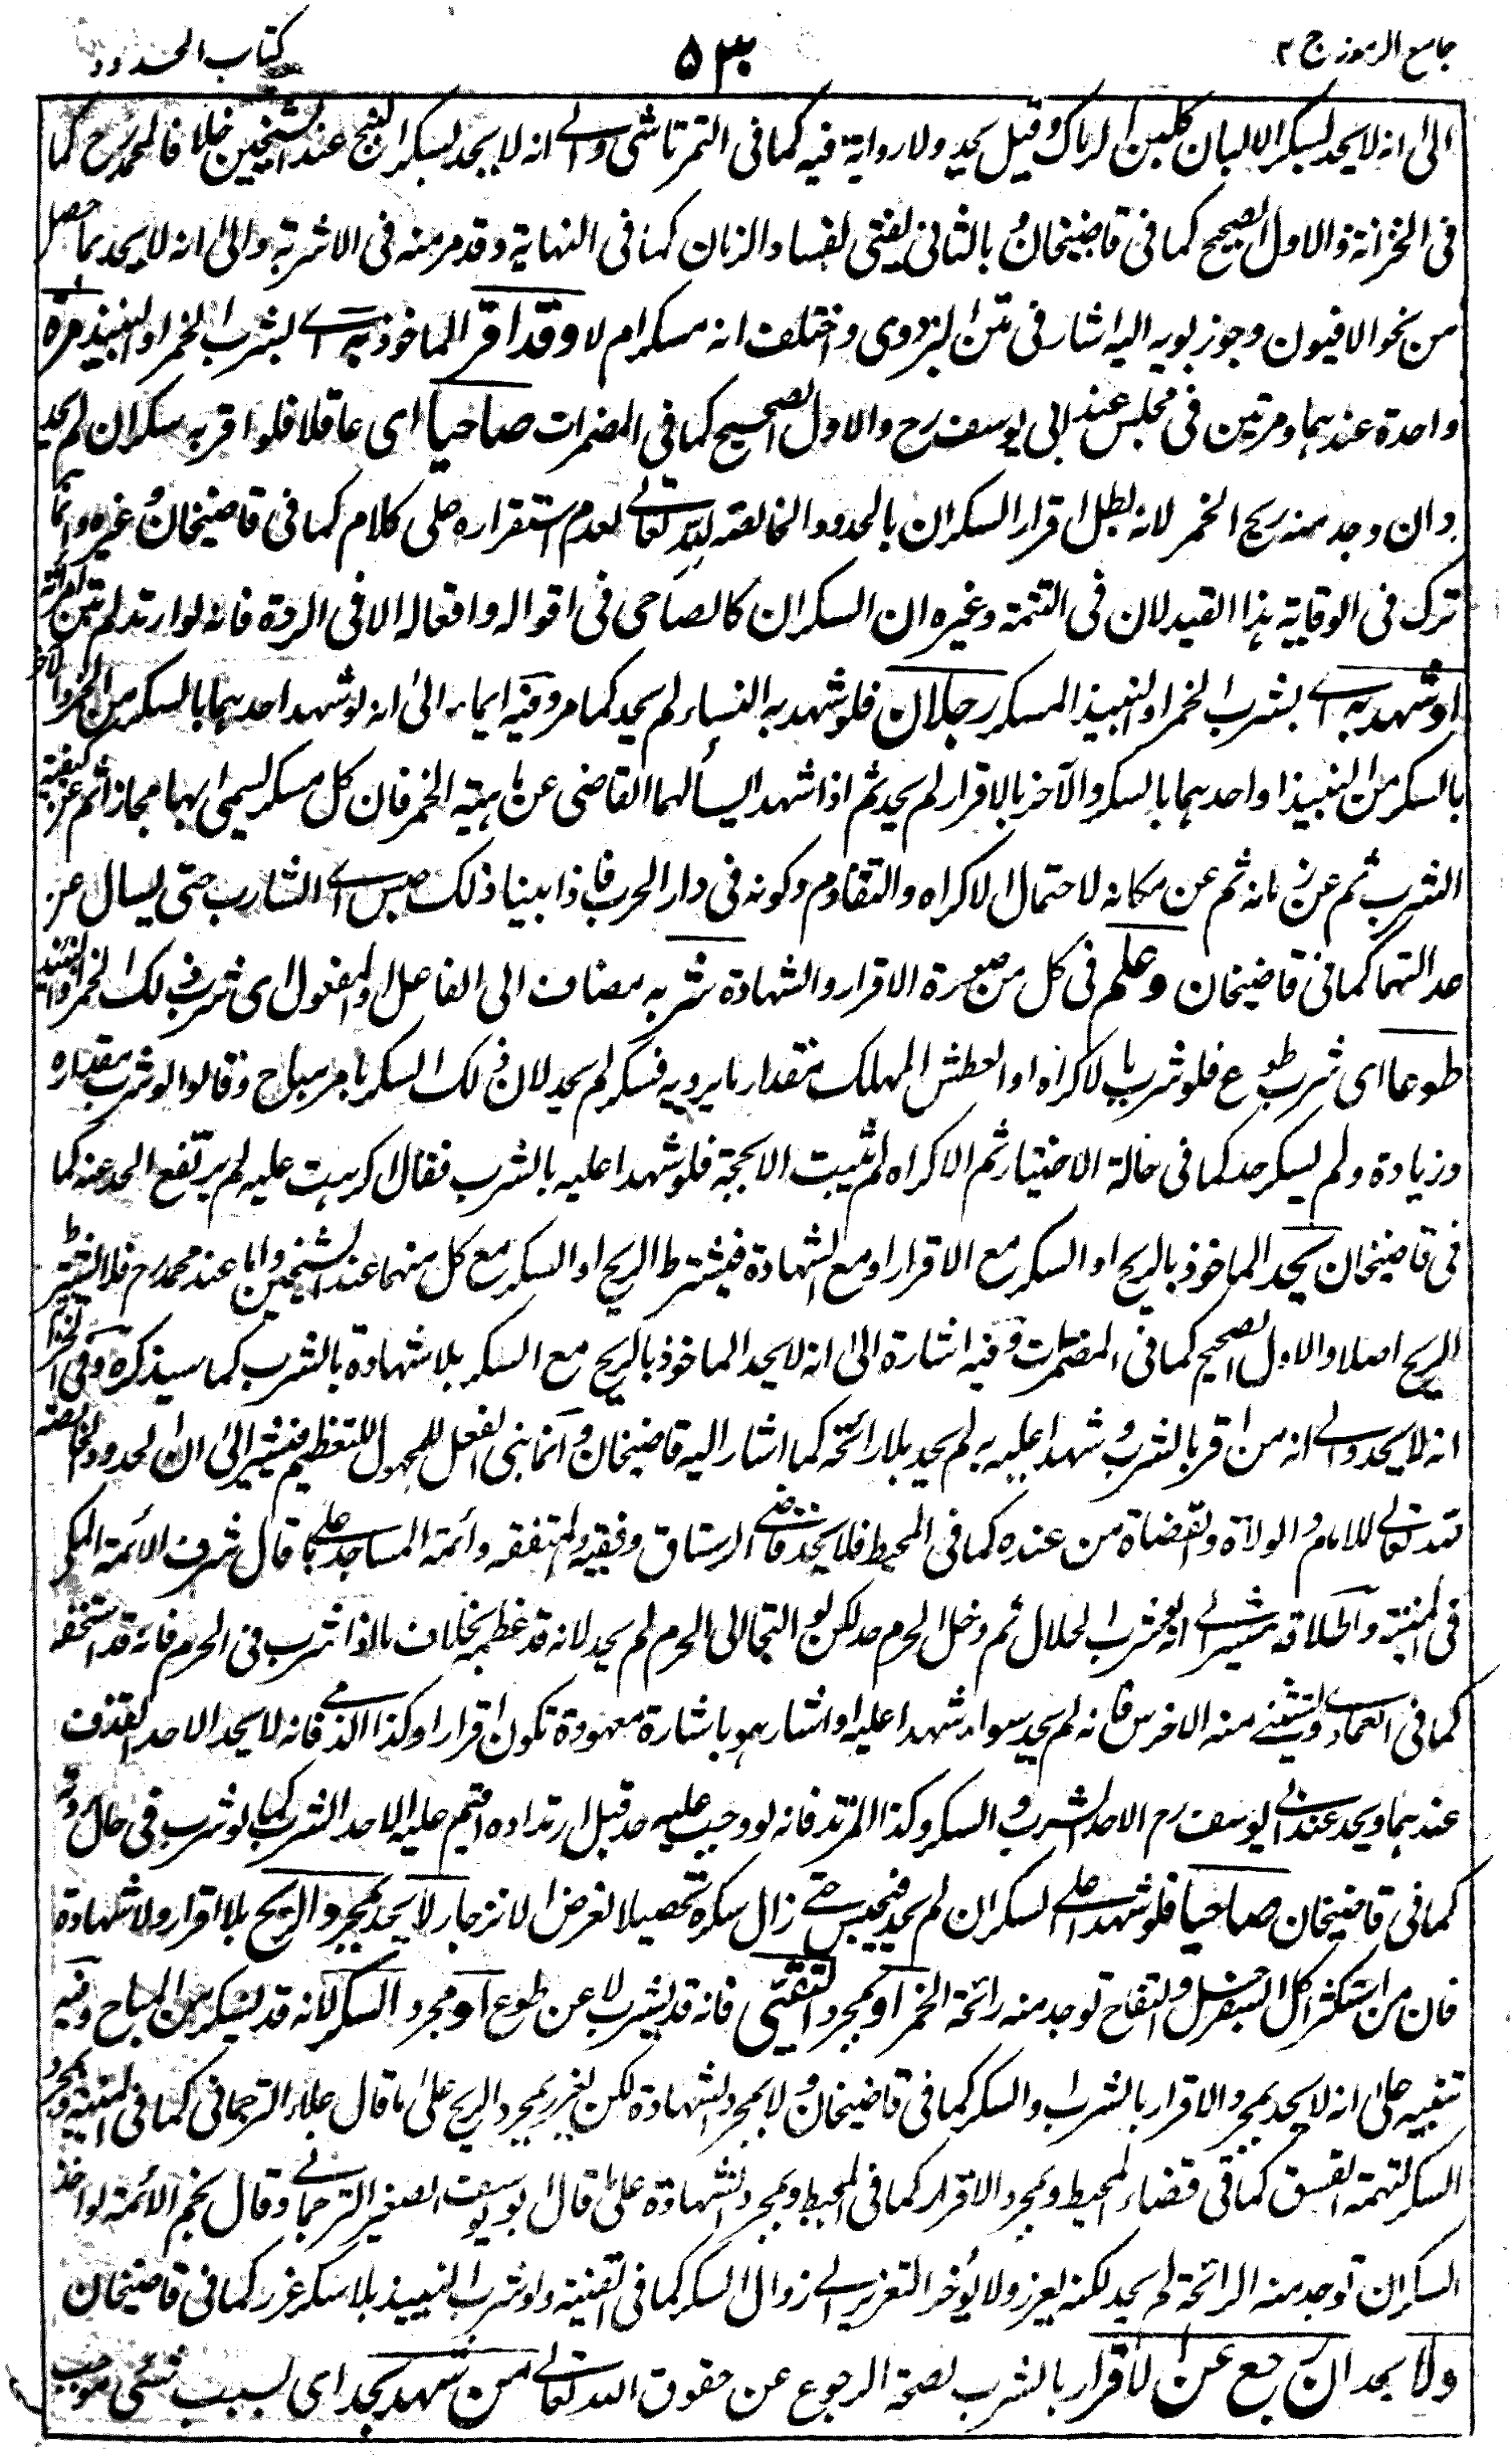 جامع الرموز ج ٢
٥٣٠
كتاب الحدود
الى انه لا يحد بسكر الالبان كلبن الرماك وقيل يحد ولا رواية فيه كما فى التمرتاشى والى انه لا يحد بسكر البنج عند الشيخين خلافا لمحمد رح كما
فى الخزانة والاول الصحيح كما فى قاضيخان وبالثانى يفتى لفساد الزمان كما فى النهاية وقد مر منه فى الاشربة والى انه لا يحد بما حصل
من نحو الافيون وجوز بويه اليه اشار فى متن البزدوى واختلف انه مسكر ام لا وقد اقر الماخوذ به اى بشرب الخمر او النبيذ مرة
واحدة عندهما ومرتين فى مجلس عند ابى يوسف رح والاول الصحيح كما فى المضمرات صاحيا اى عاقلا فلو اقر به سكران لم يحد
وان وجد منه ريح الخمر لانه بطل اقرار السكران بالحدود الخالصة لله تعالى لعدم استقراره على كلام كما فى قاضيخان وغيره وانما
ترك فى الوقاية هذا القيد لان فى التتمة وغيره ان السكران كالصاحى فى اقواله وافعاله الا فى الردة فانه لو ارتد لم تبن امرأته
او شهد به اى بشرب الخمر او النبيذ المسكر رجلان فلو شهد به النساء لم يحد كما مر وفيه ايماء الى انه لو شهد احدهما بالسكر من الخمر والآخر
بالسكر من النبيذ او احدهما بالسكر والآخر بالاقرار لم يحد ثم اذا شهدا يسألهما القاضى عن ماهية الخمر فان كل مسكر يسمى بها مجازا ثم عن كيفية
الشرب ثم عن زمانه ثم عن مكانه لاحتمال الاكراه والتقادم وكونه فى دار الحرب فاذا بينا ذلك حبس اى الشارب حتى يسال عن
عدالتهما كما فى قاضيخان وعلم فى كل من صورة الاقرار والشهادة شربه مضاف الى الفاعل او المفعول اى شرب ذلك الخمر او النبيذ
طوعا اى شرب طوع فلو شرب بالاكراه او العطش المهلك مقدار ما يرويه فسكر لم يحد لان ذلك السكر بامر مباح وقالوا لو شرب مقداره
وزيادة ولم يسكر حد كما فى حالة الاختيار ثم الاكراه لم يثبت الا بحجة فلو شهدا عليه بالشرب فقال اكرهت عليه لم يرتفع الحد عنه كما
فى قاضيخان يحد الماخوذ بالريح او السكر مع الاقرار او مع الشهادة فيشترط الريح او السكر مع كل منهما عند الشيخين واما عند محمد رح فلا يشترط
الريح اصلا والاول الصحيح كما فى المضمرات وفيه اشارة الى انه لا يحد الماخوذ بالريح مع السكر بلا شهادة بالشرب كما سيذكره وفى الخزانة
انه لا يحد والى انه من اقر بالشرب او شهدا عليه به لم يحد بلا رائحة كما اشار اليه قاضيخان وانما بنى الفعل للمجهول للتعظيم فيشير الى ان الحدود الخالصة
لله تعالى للامام والولاة والقضاة من عنده كما فى المحيط فلا يحد قاضى الرستاق وفقيه والمتفقه وائمة المساجد على ما قال شرف الائمة المكى
فى المنية واطلاقه مشير الى انه لو شرب الحلال ثم دخل الحرم حد لكن لو التجأ الى الحرم لم يحد لانه قد عظمه بخلاف ما اذا شرب فى الحرم فانه قد استخفه
كما فى العمادى ويستثنى منه الاخرس فانه لم يحد سواء شهدا عليه او اشار هو باشارة معهودة تكون اقرارا وكذا الذمى فانه لا يحد الا حد القذف
عندهما ويحد عند ابى يوسف رح الا حد الشرب والسكر وكذا المرتد فانه لو وجب عليه حد قبل ارتداده اقيم عليه الا حد الشرب كما لو شرب فى حال ردته
كما فى قاضيخان صاحيا فلو شهدا على السكران لم يحد فيحبس حتى زال سكره تحصيلا لغرض الانزجار لا يحد بمجرد الريح بلا اقرار ولا شهادة
فان من استكثر اكل السفرجل والتفاح توجد منه رائحة الخمر او بمجرد التقئ فانه قد يشرب لا عن طوع او مجرد السكر لانه قد يسكر من المباح وفيه
تنبيه على انه لا يحد بمجرد الاقرار بالشرب والسكر كما فى قاضيخان ولا بمجرد الشهادة لكن يعزر بمجرد الريح على ما قال علاء الترجمانى كما فى المنية وبمجرد
السكر لتهمة الفسق كما فى قضاء المحيط وبمجرد الاقرار كما فى المحيط وبمجرد الشهادة على ما قال ابو يوسف الصغير الترجمانى وقال نجم الائمة لو اخذ
السكران توجد منه الرائحة لم يحد لكنه يعزر ولا يؤخر التعزير الى زوال السكر كما فى القنية ولو شرب النبيذ بلا سكر عزر كما فى قاضيخان
ولا يحد ان رجع عن الاقرار بالشرب لصحة الرجوع عن حقوق الله تعالى من شهد بحد اى بسبب شئ موجب